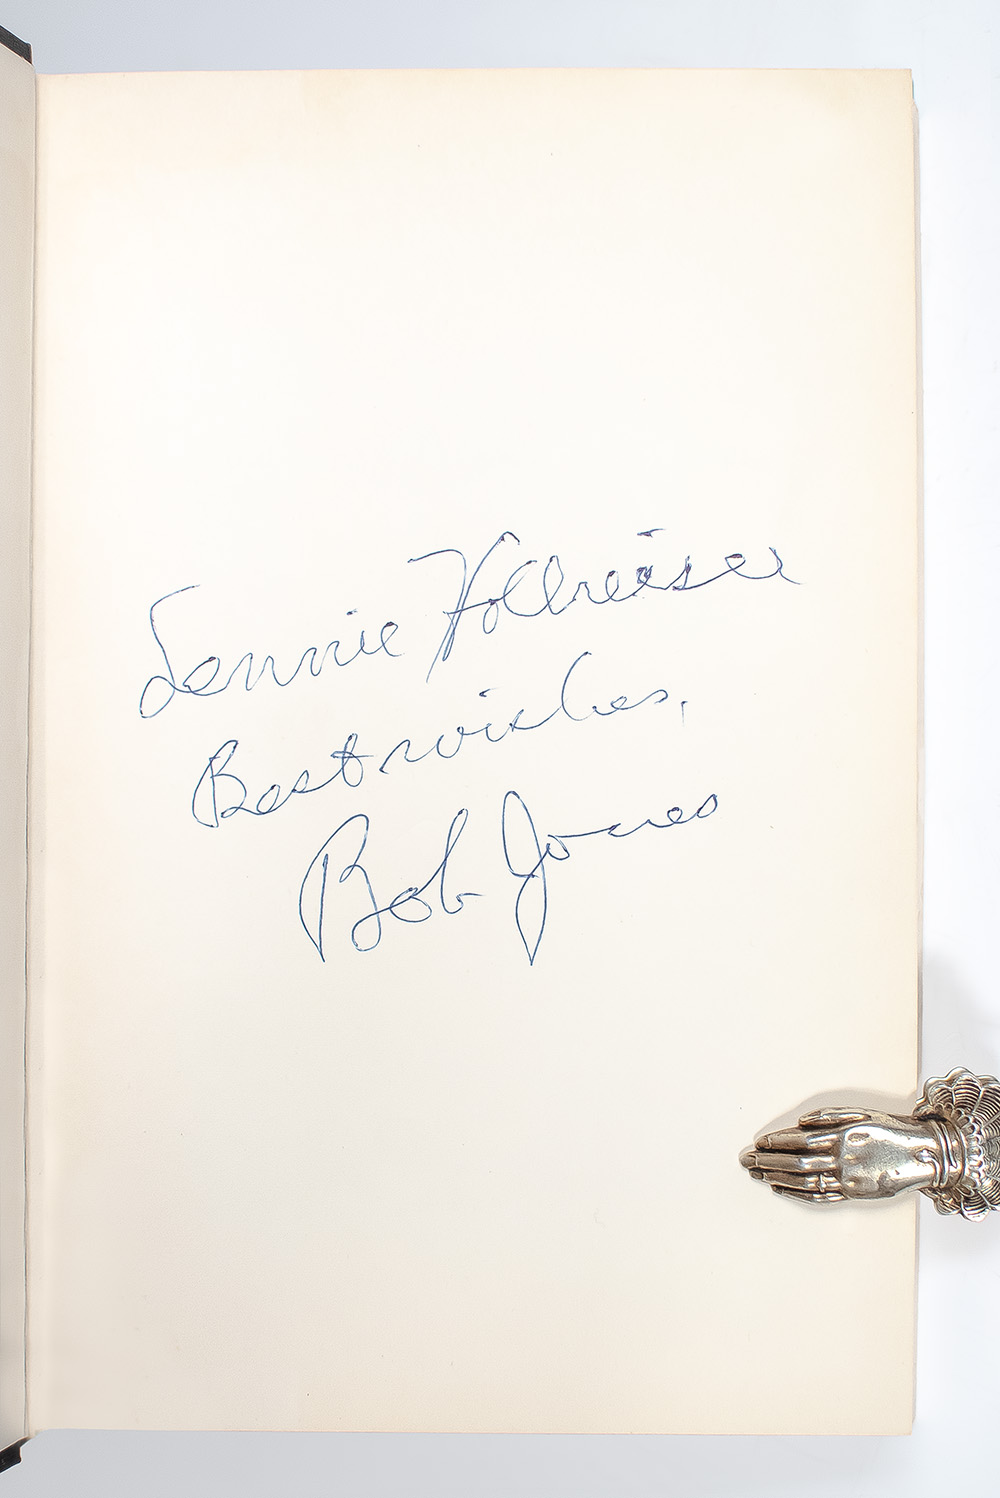 Lennie Hollreiser
Best wishes,
Bob Jones